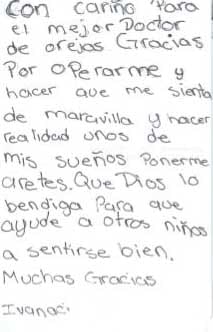 Con cariño Para
el mejor Doctor
de orejas Gracias
Por operarme y
hacer que me sienta
de maravilla y hacer
realidad unos de
mis sueños Ponerme
aretes. Que Dios lo
bendiga Para que
ayude a otros niños
a sentirse bien.
Muchas Gracias